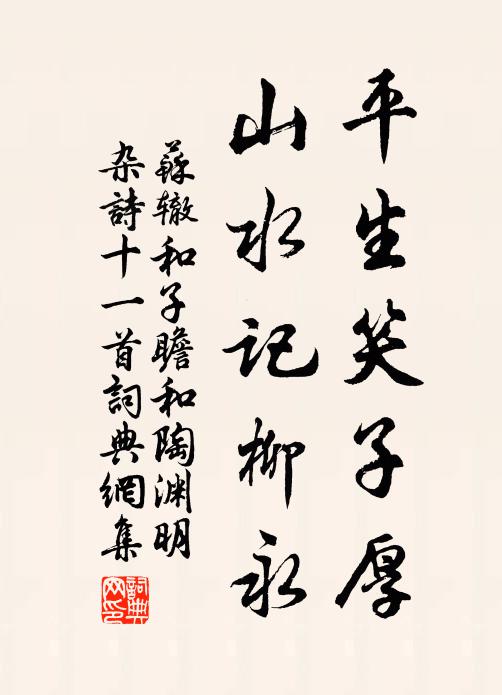 平生笑子厚
山水记柳永
蘇辙和子瞻和陶渊明
杂詩十一首詞典網集
詞典网印